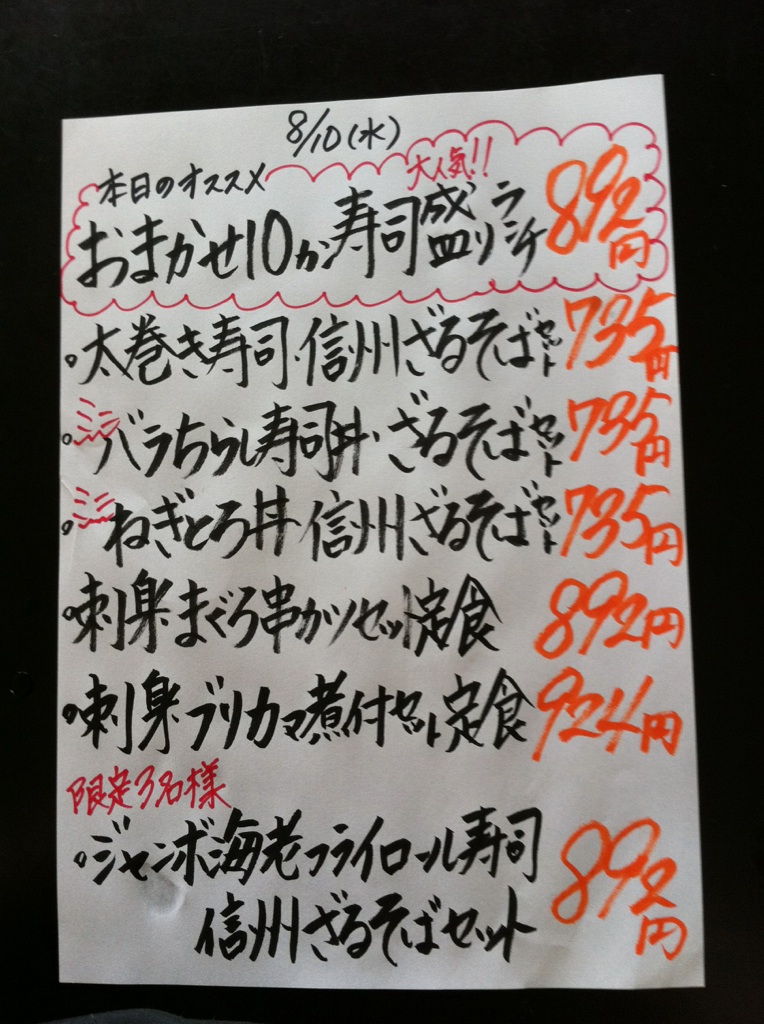 8/10(水)
本日のオススメ
大人気!!
おまかせ10カン寿司盛りランチ 892円
・太巻き寿司・信州ざるそばセット 735円
・ミニバラちらし寿司丼・ざるそばセット 735円
・ミニねぎとろ丼・信州ざるそばセット 735円
・刺身・まぐろ串カツセット定食 892円
・刺身・ブリカマ煮付セット定食 924円
限定3名様
・ジャンボ海老フライロール寿司
信州ざるそばセット 892円